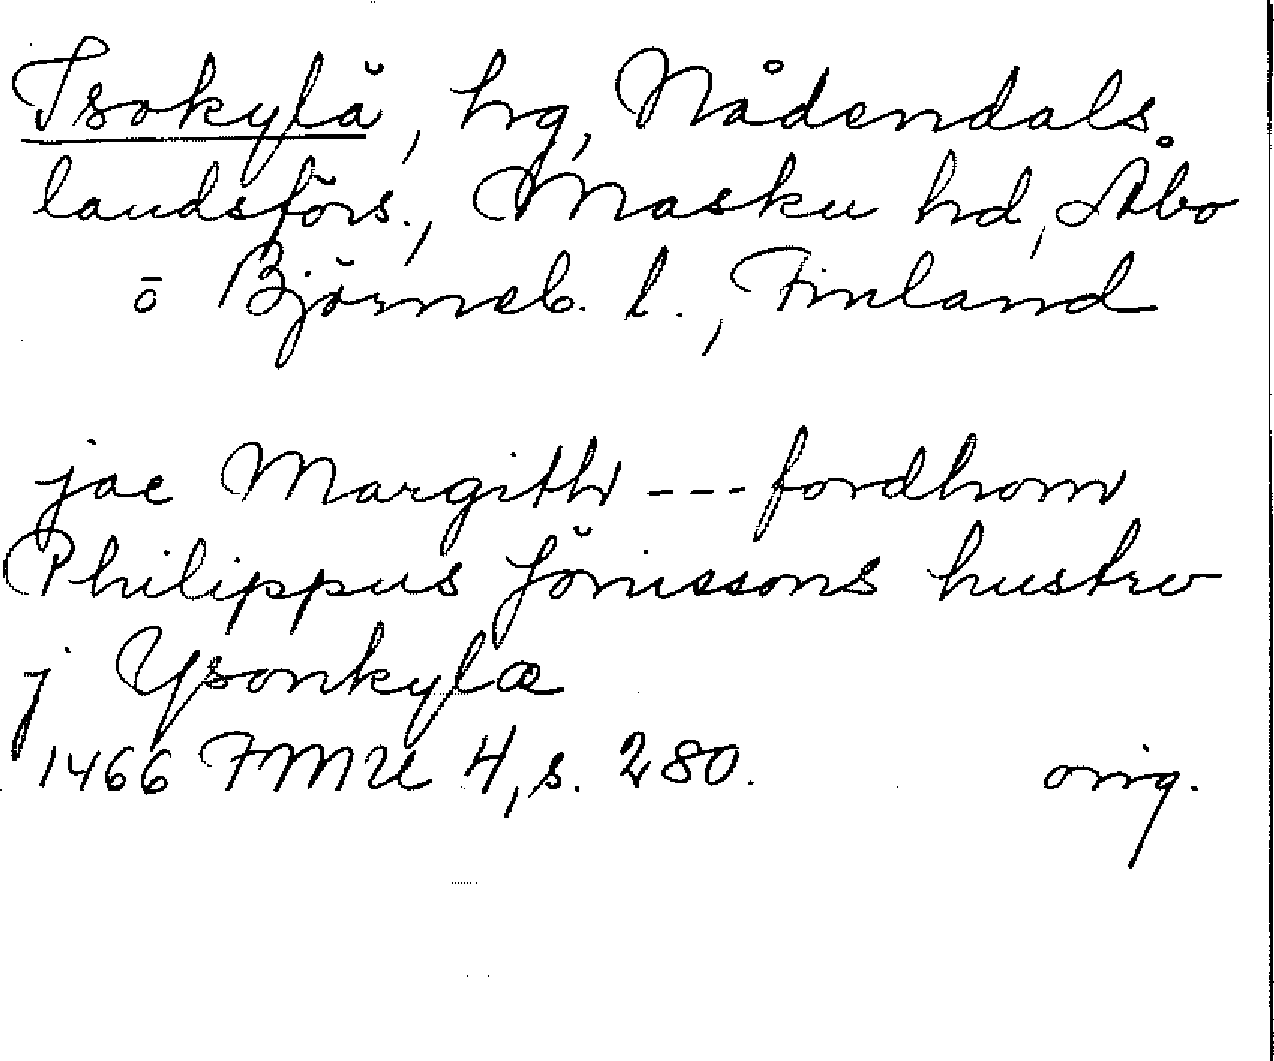 Isokylä, hg, Nådendals
landsförs., Masku hd, Åbo
o Björneb. l., Finland
jac Margith --- fordhom
Philippus Jönissons hustrv
j Ysonkylæ
1466 FMU 4, s. 280. orig.